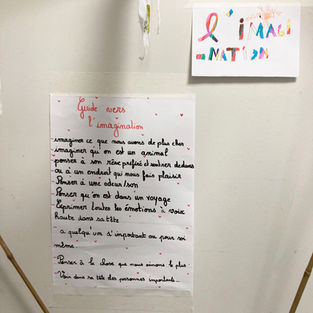 L'iMAGi
NATION
Guide vers
l'imagination
imaginer ce que nous avons de plus cher
imaginer qu'on est un animal
penser à son rêve préféré et rentrer dedans
ou à un endroit qui nous fait plaisir
Penser à une odeur/son
Penser qu'on est dans un voyage
Exprimer toutes les émotions à voix
haute dans sa tête
à quelqu'un d'important ou pour soi
même
Penser à la chose que nous aimons le plus
Voir dans sa tête des personnes importante